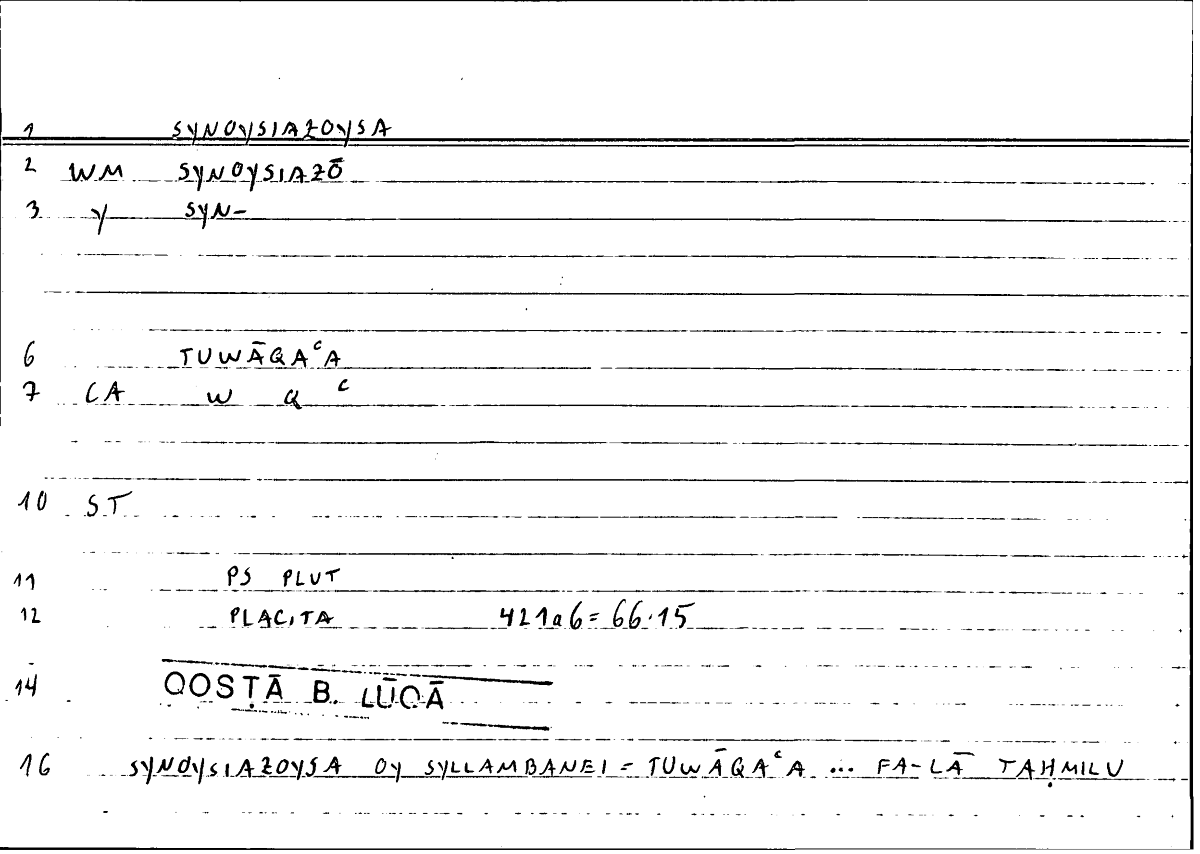 1 SYNOYSIAZOYSA
2 WM SYNOYSIAZŌ
3 Y SYN-
6 TUWĀQAᶜA
7 CA W Q ᶜ
10 ST
11 PS PLUT
12 PLACITA 421a6 = 66.15
14 QOSṬĀ B. LŪQĀ
16 SYNOYSIAZOYSA OY SYLLAMBANEI = TUWĀQAᶜA ... FA-LĀ TAḤMILU